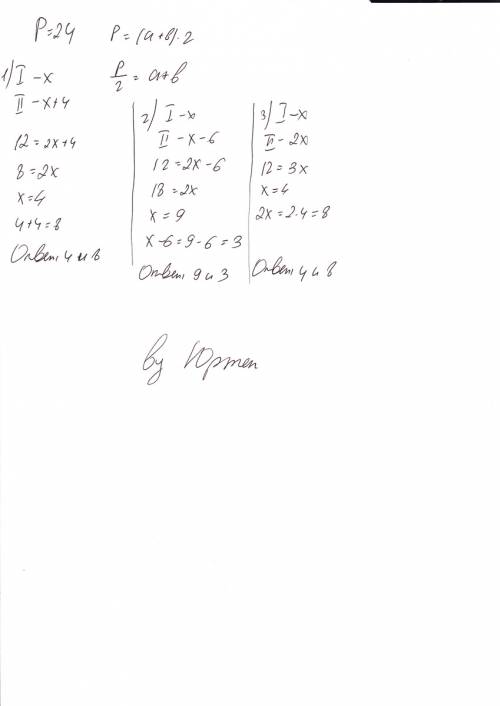 P=24 P=(a+b)·2
P/2 = a+b
1) I - x
II - x+4
12=2x+4
8=2x
x=4
4+4=8
Ответ: 4 и 8
2) I - x
II - x-6
12=2x-6
18=2x
x=9
x-6=9-6=3
Ответ: 9 и 3
3) I - x
II - 2x
12=3x
x=4
2x=2·4=8
Ответ: 4 и 8
by Юртеп